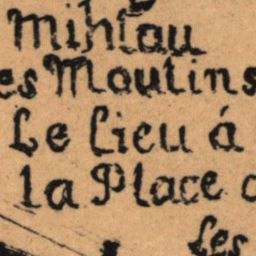 Mihlau
es Moulins
Le Lieu á
la Place
Les